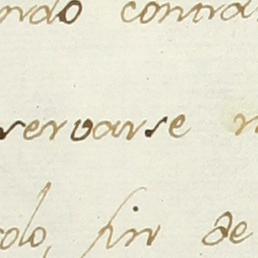 ndo contra
servarse
olo, sin de